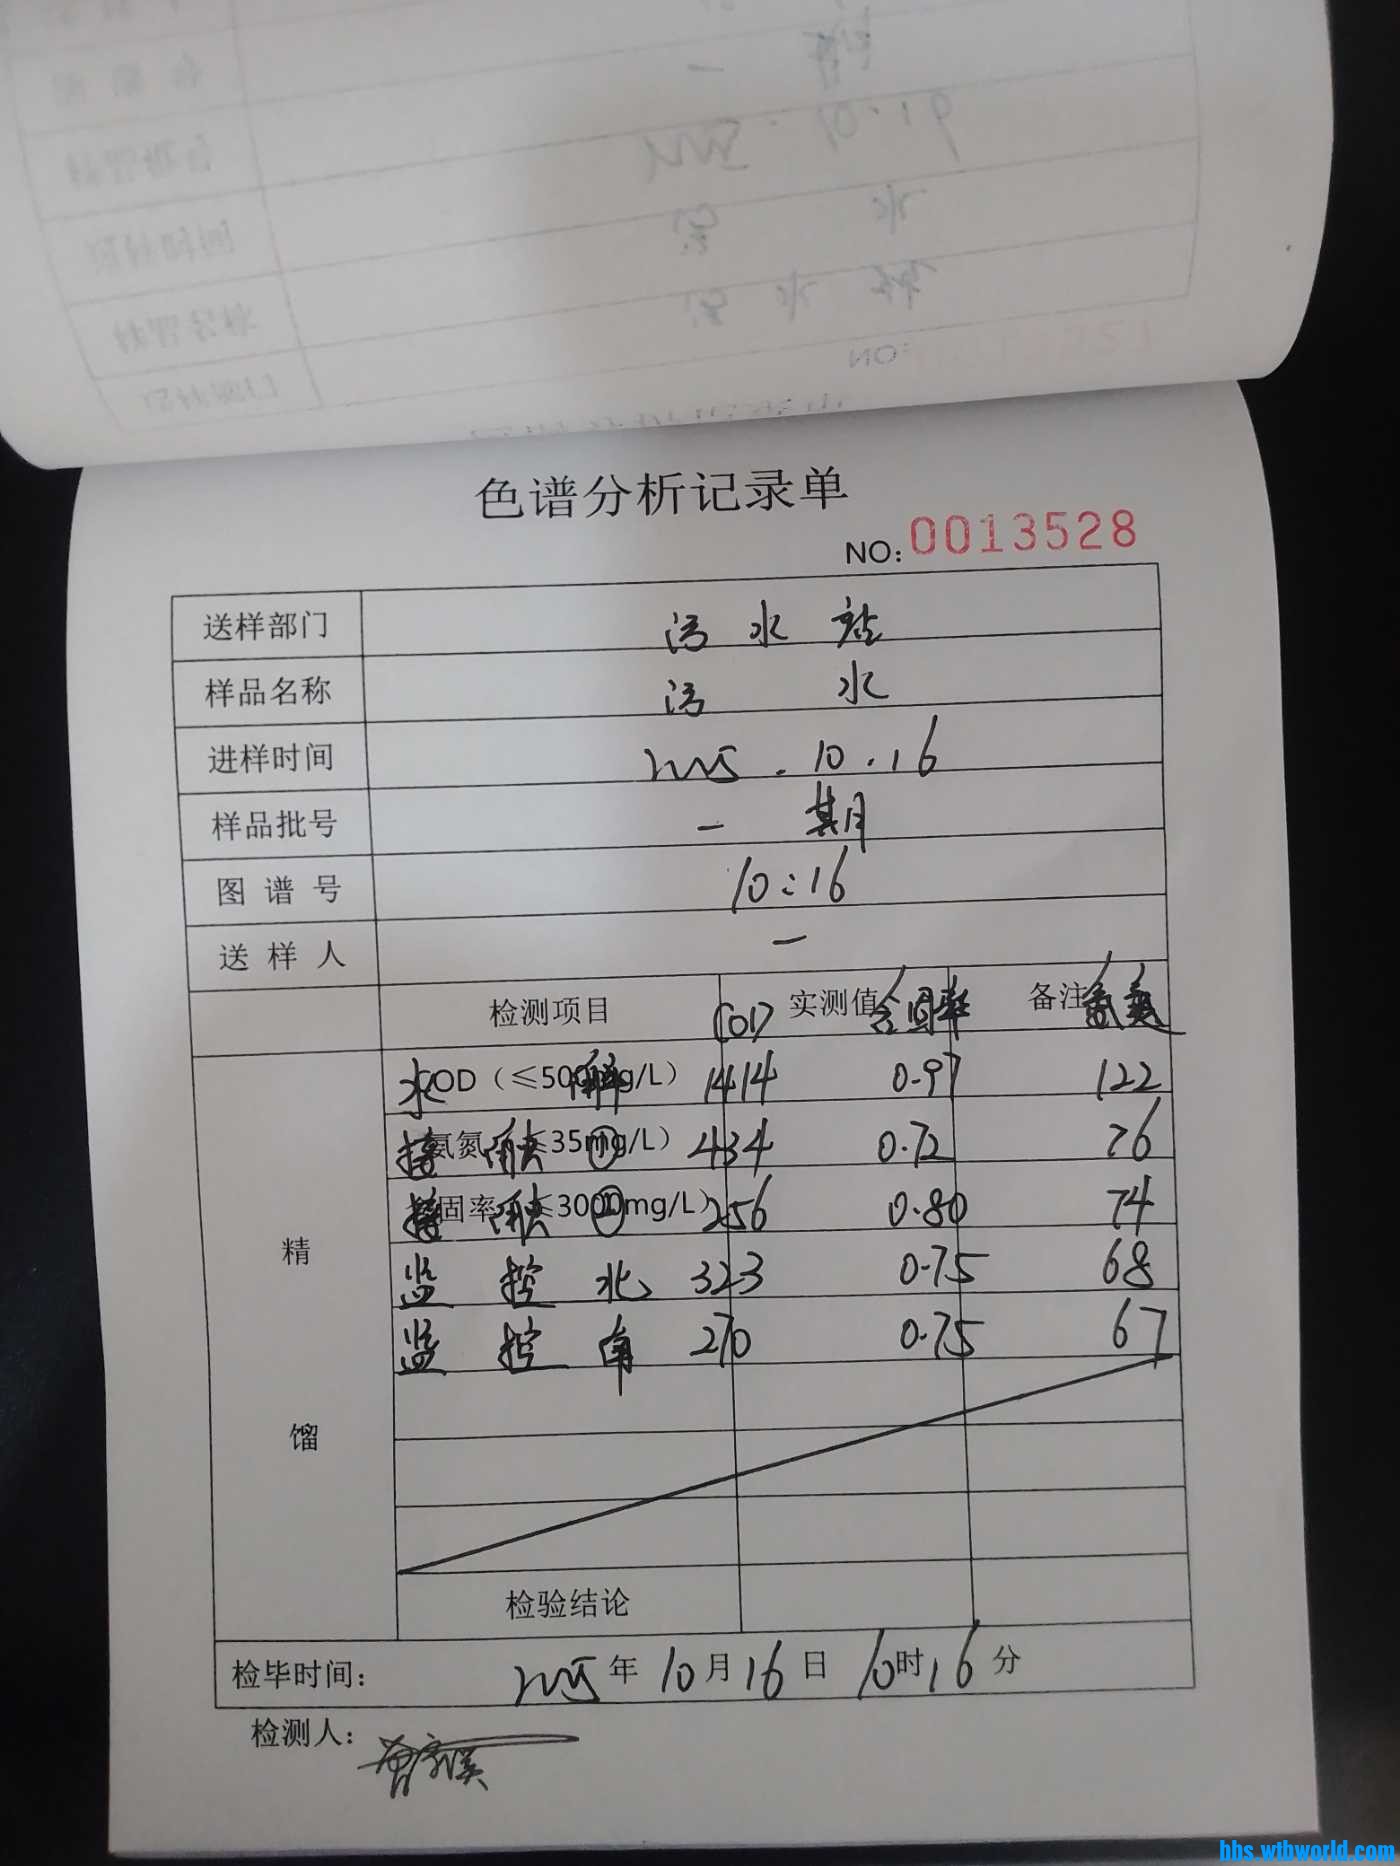 色谱分析记录单
NO: 0013528
送样部门 污水站
样品名称 污水
进样时间 2025.10.16
样品批号 一期
图谱号 10:16
送样人 一
检测项目 COD 实测值 含固率 备注 氨氮
COD（≤500mg/L） 水解 1414 0.97 122
氨氮（≤35mg/L） 接触① 434 0.72 76
含固率（≤3000mg/L） 接触 256 0.80 74
监控北 323 0.75 68
监控南 270 0.75 67
精
馏
检验结论
检毕时间: 2025年10月16日10时16分
检测人:
bbs.wtbworld.com